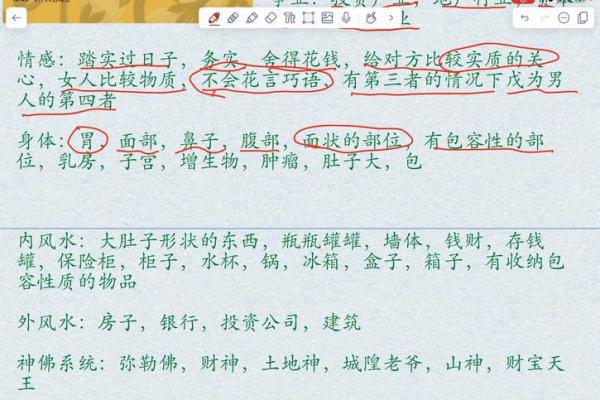 情感：踏实过日子，务实，舍得花钱，给对方比较实质的关
心，女人比较物质，不会花言巧语，有第三者的情况下戊为男
人的第四者
身体：胃，面部，鼻子，腹部，面状的部位，有包容性的部
位，乳房，子宫，增生物，肿瘤，肚子大，包
内风水：大肚子形状的东西，瓶瓶罐罐，墙体，钱财，存钱
罐，保险柜，柜子，水杯，锅，冰箱，盒子，箱子，有收纳包
容性质的物品
外风水：房子，银行，投资公司，建筑
神佛系统：弥勒佛，财神，土地神，城隍老爷，山神，财宝天
王